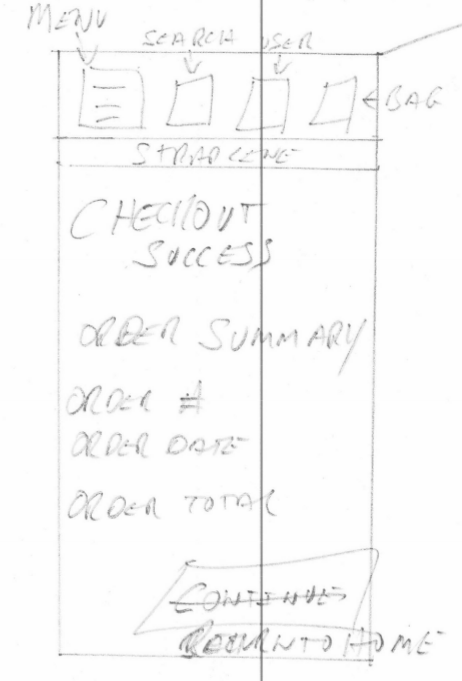 MENU
SEARCH USER
BAG
STRAPLINE
CHECKOUT
SUCCESS
ORDER SUMMARY
ORDER #
ORDER DATE
ORDER TOTAL
CONTINUE
RETURN TO HOME